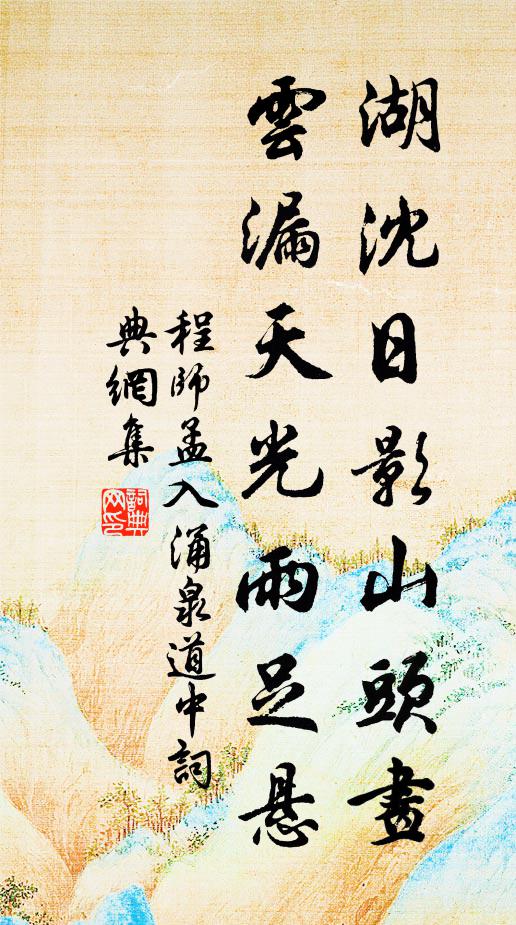 湖沈日影山頭畫
雲漏天光雨足懸
程師孟入涌泉道中詞
典網集
詞典網印